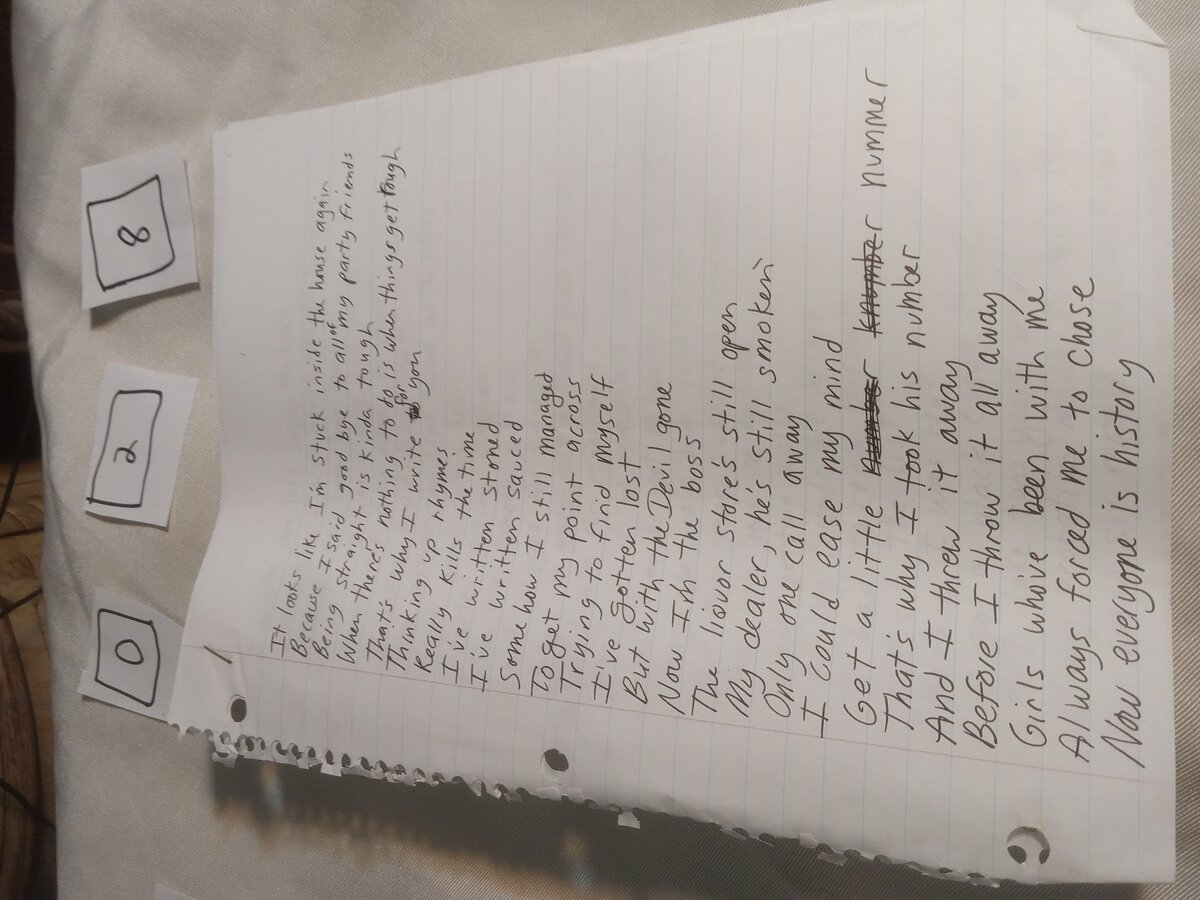 0
2
8
1
It looks like I'm stuck inside the house again
Because I said good bye to all of my party friends
Being straight is kinda tough
When there's nothing to do is when things get tough
That's why I write for you
Thinking up rhymes
Really kills the time
I've written stoned
I've written sauced
Some how I still managed
To get my point across
Trying to find myself
I've gotten lost
But with the Devil gone
Now I'm the boss
The liquor store's still open
My dealer, he's still smoken
Only one call away
I could ease my mind
Get a little number knumber nummer
That's why I took his number
And I threw it away
Before I throw it all away
Girls whoive been with me
Always forced me to chose
Now everyone is history